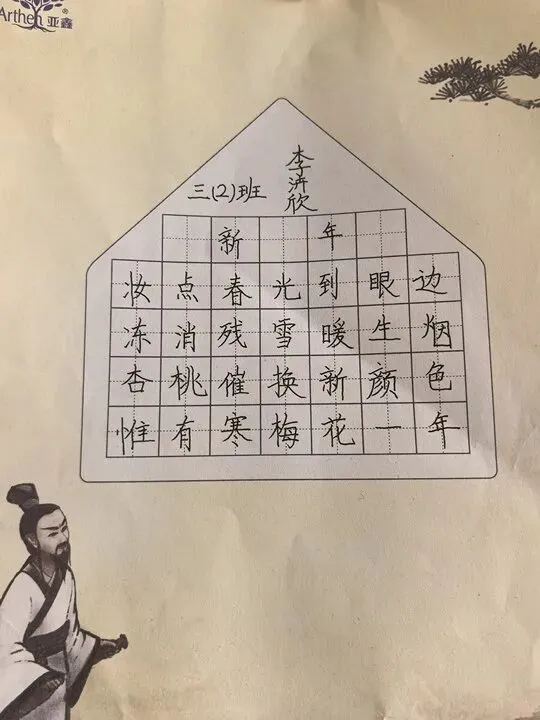 Arthen亚鑫®
李浒欣
三(2)班
新年
妆点春光到眼边
冻消残雪暖生烟
杏桃催换新颜色
惟有寒梅花一年